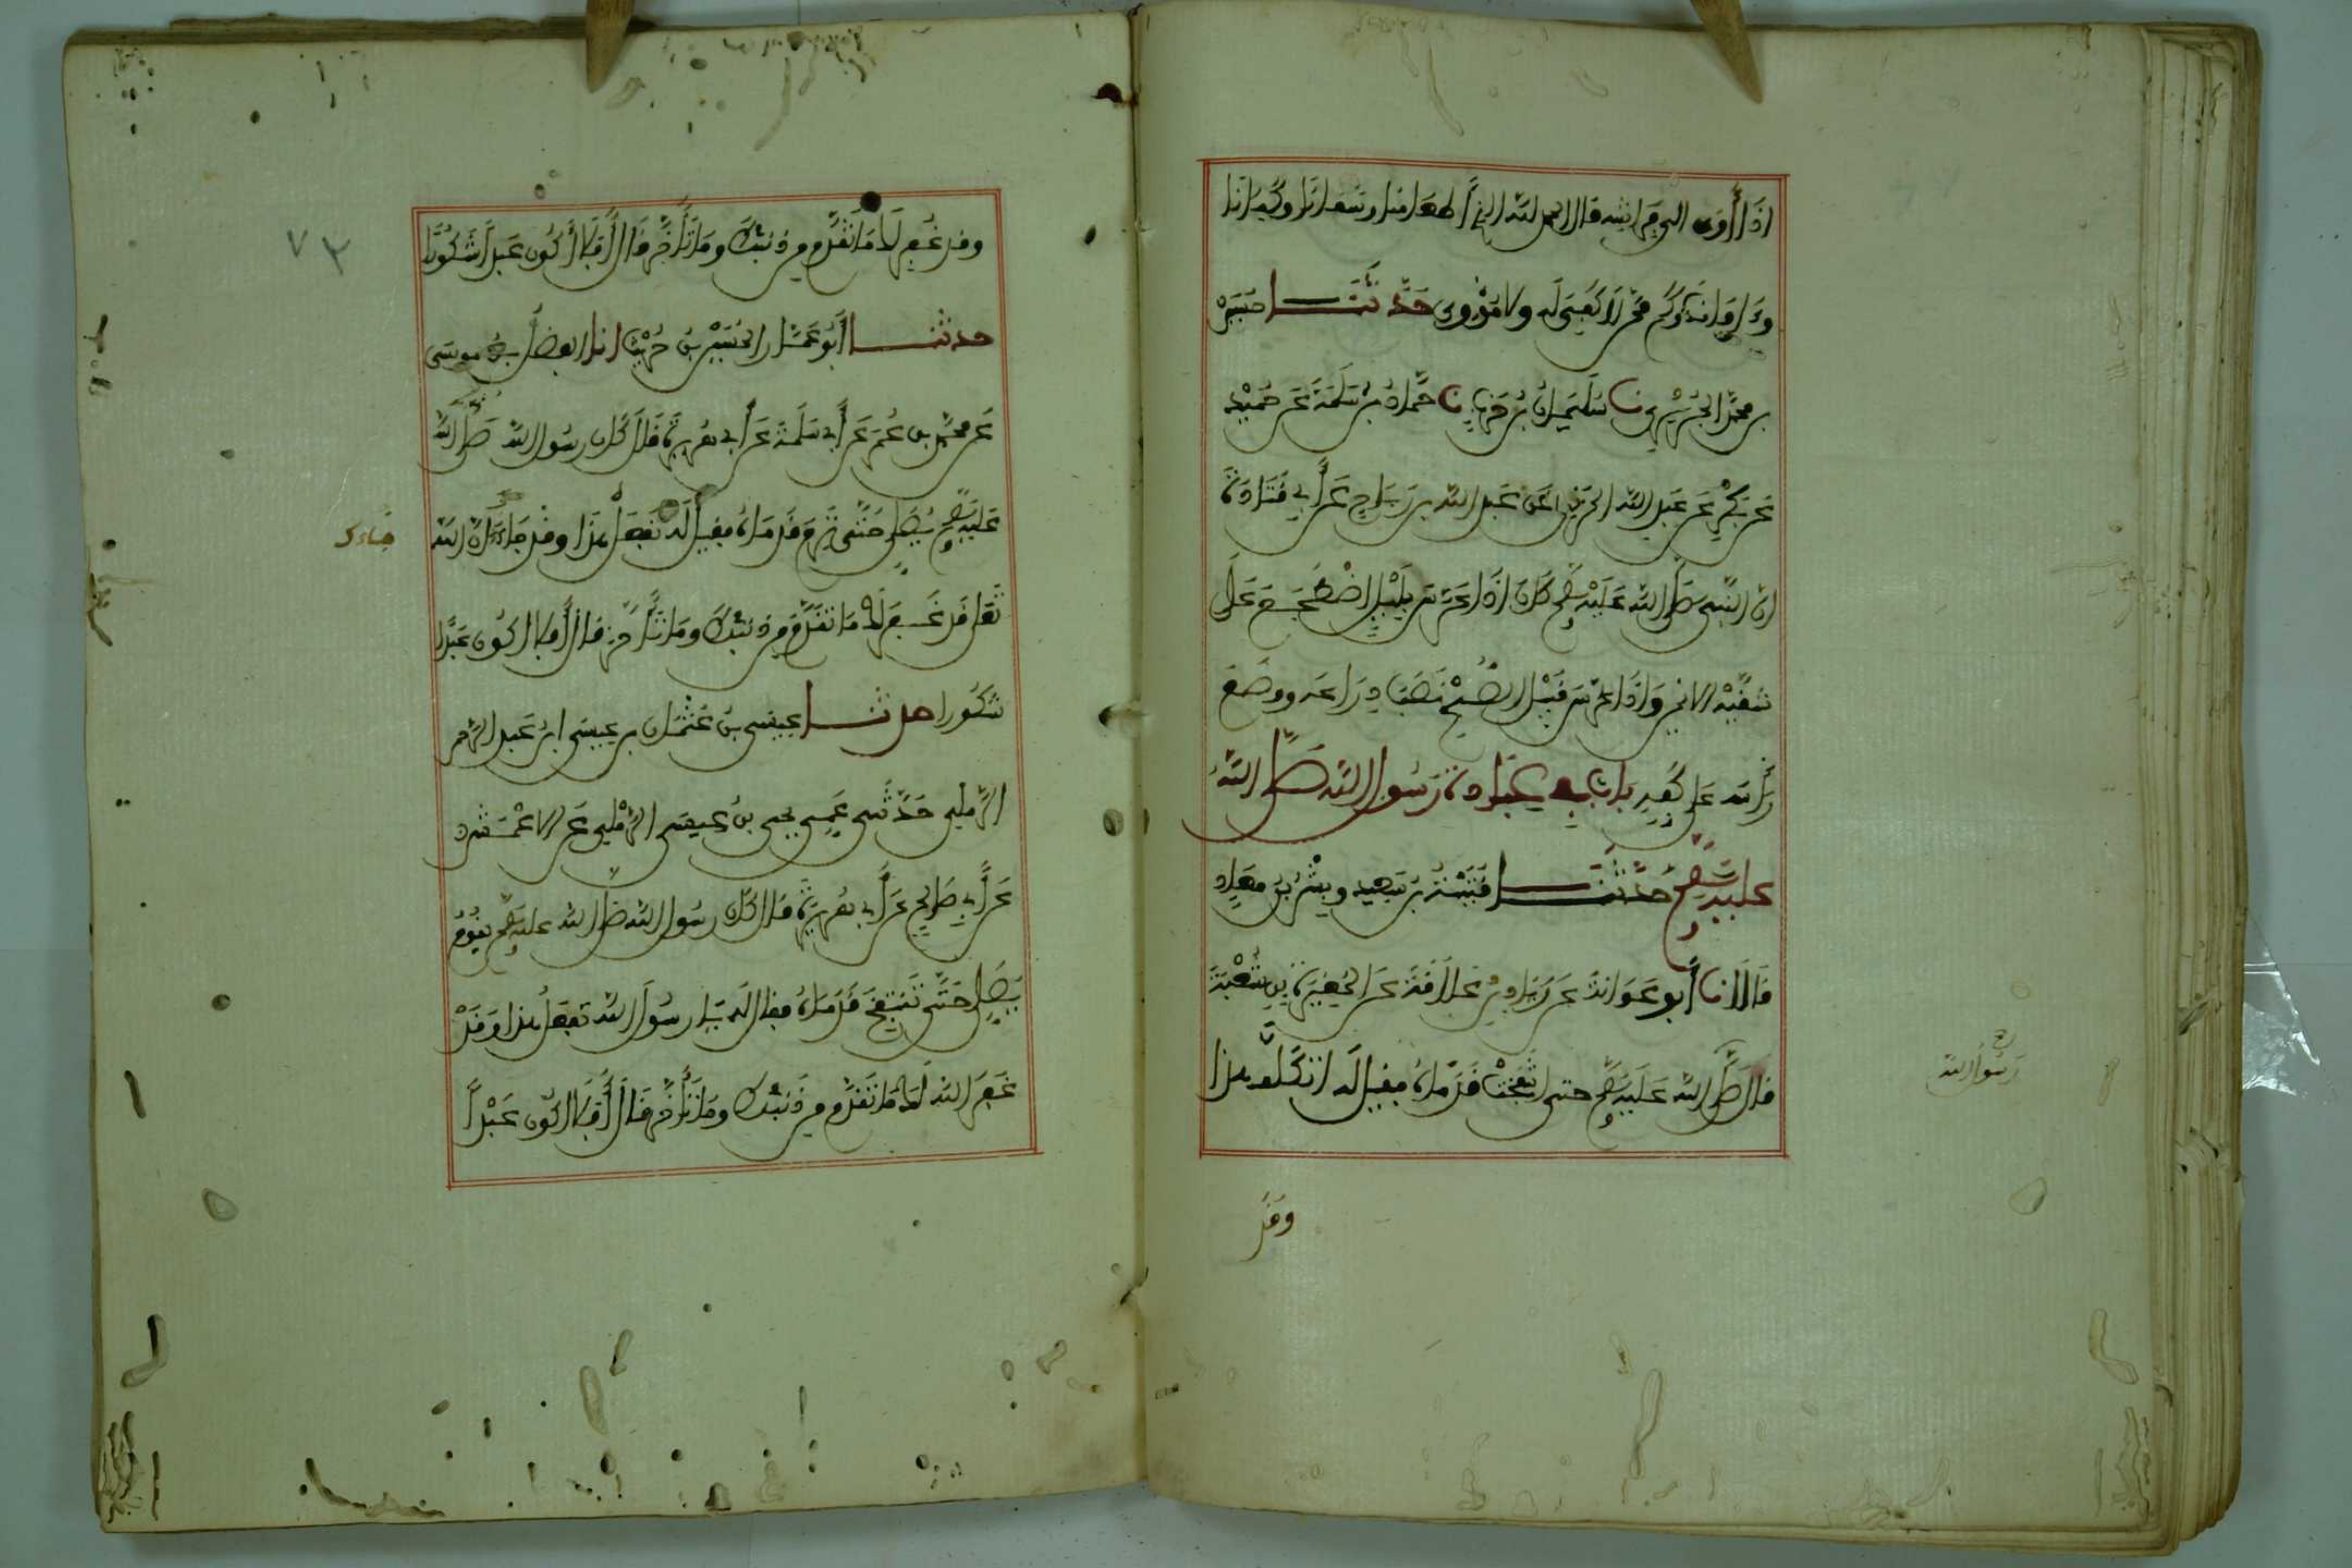 اذا أوى الى فراشه قال الحمد لله الذى أطعمنا وسقانا وكفانا
وءاوانا فكم ممن لا كافى له ولا مؤوى حدثنا حسين
بن محمد الجريرى نا سليمان بن حرب نا حماد بن سلمة عن حميد
عن بكر عن عبد الله المزنى عن عبد الله بن رباح عن أبى قتادة
ان النبى صلى الله عليه وسلم كان اذا عرس بليل اضطجع على
شقه الايمن واذا عرس قبيل الصبح نصب ذراعه ووضع
رأسه على كفه باب فى عبادة رسول الله صلى الله
عليه وسلم حدثنا قتيبة بن سعيد وبشر بن معاذ
قالا نا أبو عوانة عن زياد بن علاقة عن المغيرة بن شعبة
قال صلى الله عليه وسلم حتى انتفخت قدماه فقيل له اتتكلف هذا
رسول الله
وقد
وقد غفر لك ما تقدم من ذنبك وما تأخر قال أفلا أكون عبدا شكورا
حدثنا أبو عمار الحسين بن حريث انا الفضل بن موسى
عن محمد بن عمر عن أبى سلمة عن أبى هريرة قال كان رسول الله صلى الله
عليه وسلم يصلى حتى ترم قدماه فقيل له تفعل هذا وقد جاءك ان الله
جاءك
تعلى قد غفر لك ما تقدم من ذنبك وما تأخر قال أفلا اكون عبدا
شكورا حدثنا عيسى بن عثمان بن عيسى ابن عبد الرحمن
الرملى حدثنى عمى يحيى بن عيسى الرملى عن الاعمش
عن أبى صالح عن أبى هريرة قال كان رسول الله صلى الله عليه وسلم يقوم
يصلى حتى تنتفخ قدماه فقال له يا رسول الله تفعل هذا وقد
غفر الله لك ما تقدم من ذنبك وما تأخر قال أفلا اكون عبدا
٧٣